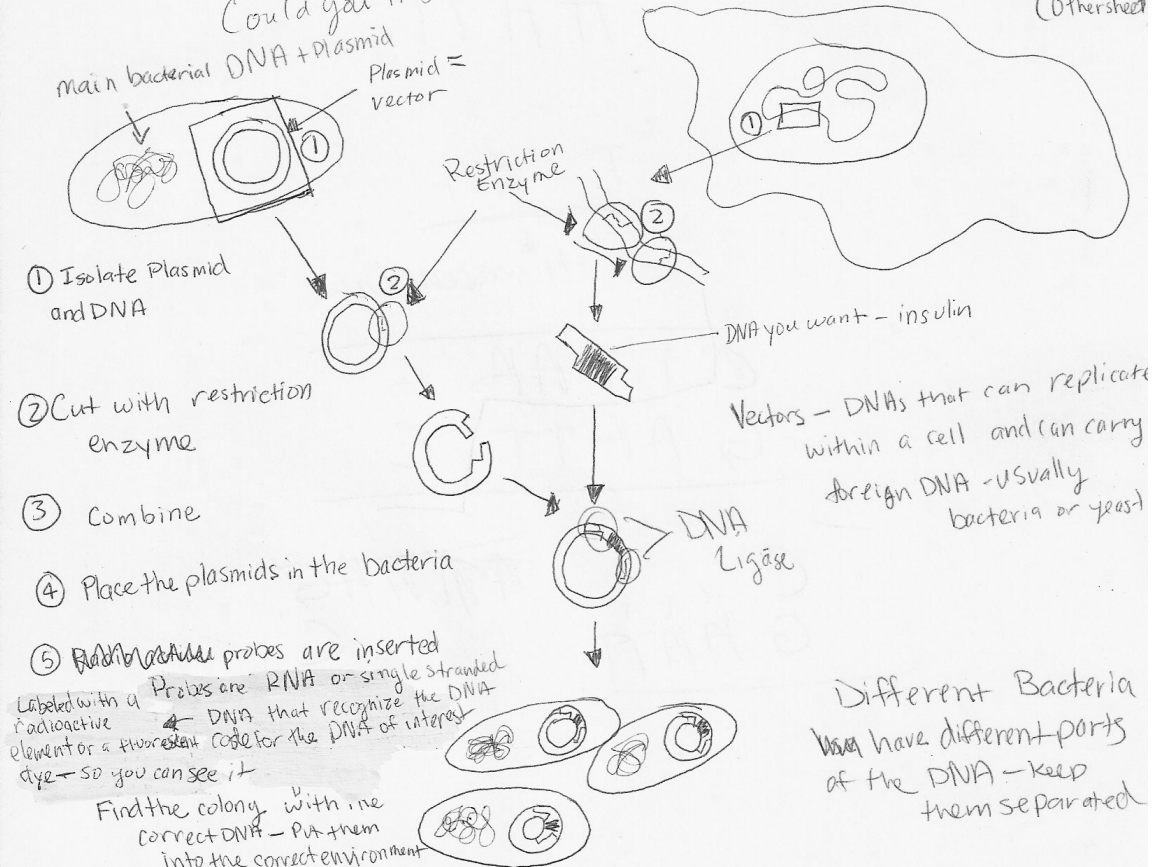 Could you
(Othersheet
main bacterial DNA + Plasmid
Plasmid =
vector
①
①
Restriction
Enzyme
②
① Isolate Plasmid
and DNA
②
DNA you want - insulin
② Cut with restriction
enzyme
Vectors - DNAs that can replicate
within a cell and can carry
foreign DNA - usually
bacteria or yeast
③ Combine
DNA
Ligase
④ Place the plasmids in the bacteria
⑤ probes are inserted
Probes are RNA or single stranded
DNA that recognize the DNA
code for the DNA of interest
Labeled with a
radioactive
element or a fluorescent
dye - so you can see it
Find the colony with the
correct DNA - Put them
into the correct environment
Different Bacteria
have different parts
of the DNA - keep
them separated